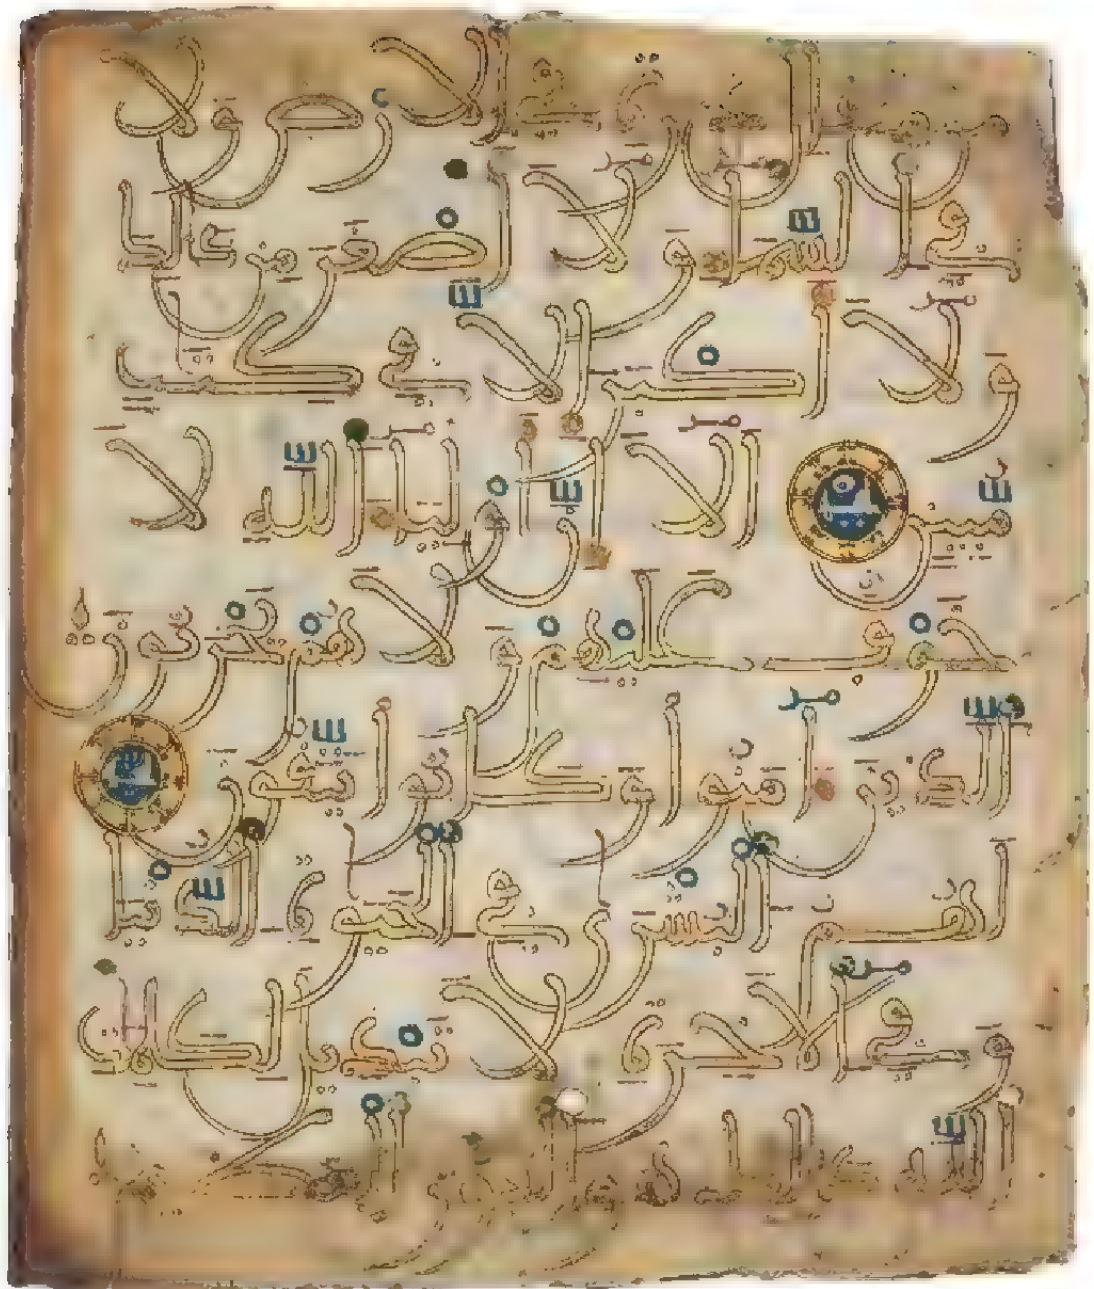 من مثقال ذرة في الارض ولا
في السماء ولا اصغر من ذلك
ولا اكبر الا في كتب
مبين الا ان اولياء الله لا
خوف عليهم ولا هم يحزنون
الذين امنوا وكانوا يتقون
لهم البشرى في الحيوة الدنيا
وفي الاخرة لا تبديل لكلمت
الله ذلك هو الفوز العظيم